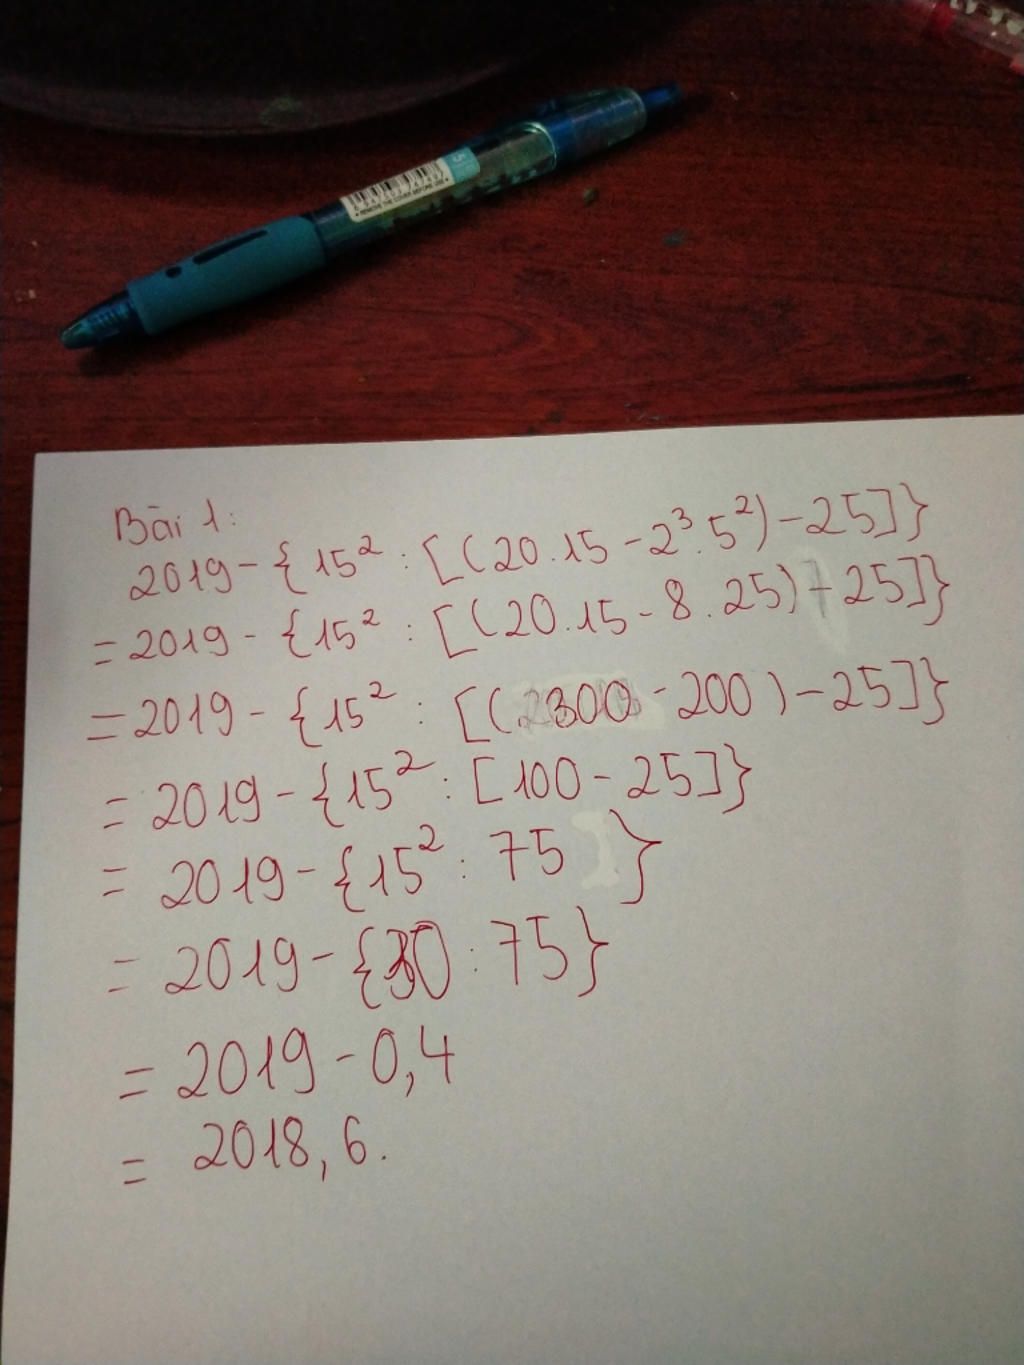 Bài 1:
2019 - { 15² : [ ( 20 . 15 - 2³ . 5² ) - 25 ] }
= 2019 - { 15² : [ ( 20 . 15 - 8 . 25 ) - 25 ] }
= 2019 - { 15² : [ ( 300 - 200 ) - 25 ] }
= 2019 - { 15² : [ 100 - 25 ] }
= 2019 - { 15² : 75 }
= 2019 - { 30 : 75 }
= 2019 - 0,4
= 2018,6.